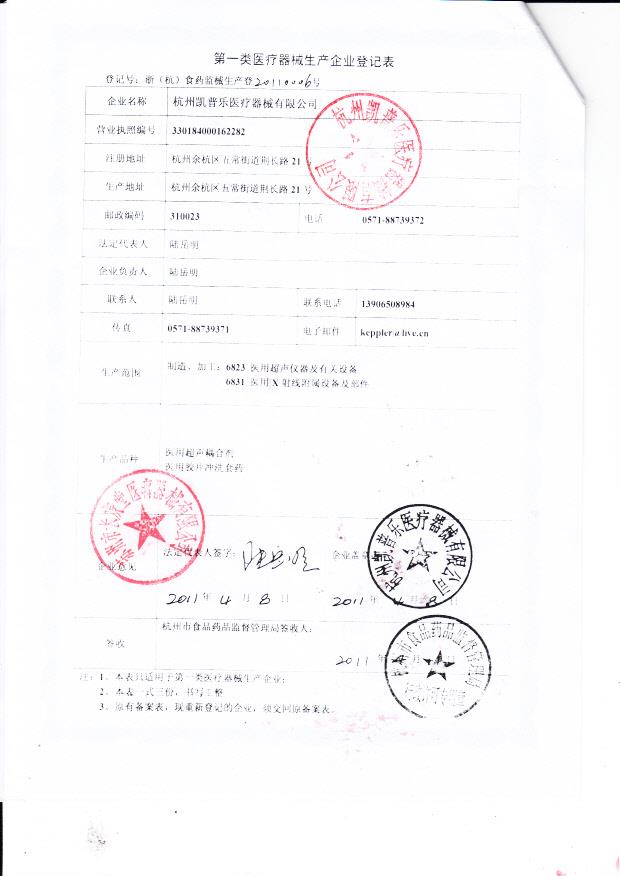 第一类医疗器械生产企业登记表
登记号：浙（杭）食药监械生产登20110006号
企业名称 杭州凯普乐医疗器械有限公司
营业执照编号 330184000162282
注册地址 杭州余杭区五常街道荆长路21号
生产地址 杭州余杭区五常街道荆长路21号
邮政编码 310023 电话 0571-88739372
法定代表人 陆岳明
企业负责人 陆岳明
联系人 陆岳明 联系电话 13906508984
传真 0571-88739371 电子邮件 keppler@live.cn
生产范围 制造、加工：6823 医用超声仪器及有关设备
6831 医用X射线附属设备及部件
生产品种 医用超声耦合剂
医用胶片冲洗套药
企业意见 法定代表人签字： 陆岳明 企业盖章
2011年 4 月 8 日 2011年 4 月 8 日
签收 杭州市食品药品监督管理局签收人：
2011 年 月 日
注：1、本表只适用于第一类医疗器械生产企业；
2、本表一式三份，书写工整
3、原有备案表，现重新登记的企业，须交回原备案表。
杭州凯普乐医疗器械有限公司
杭州凯普乐医疗器械有限公司
杭州市食品药品监督管理局
行政许可专用章